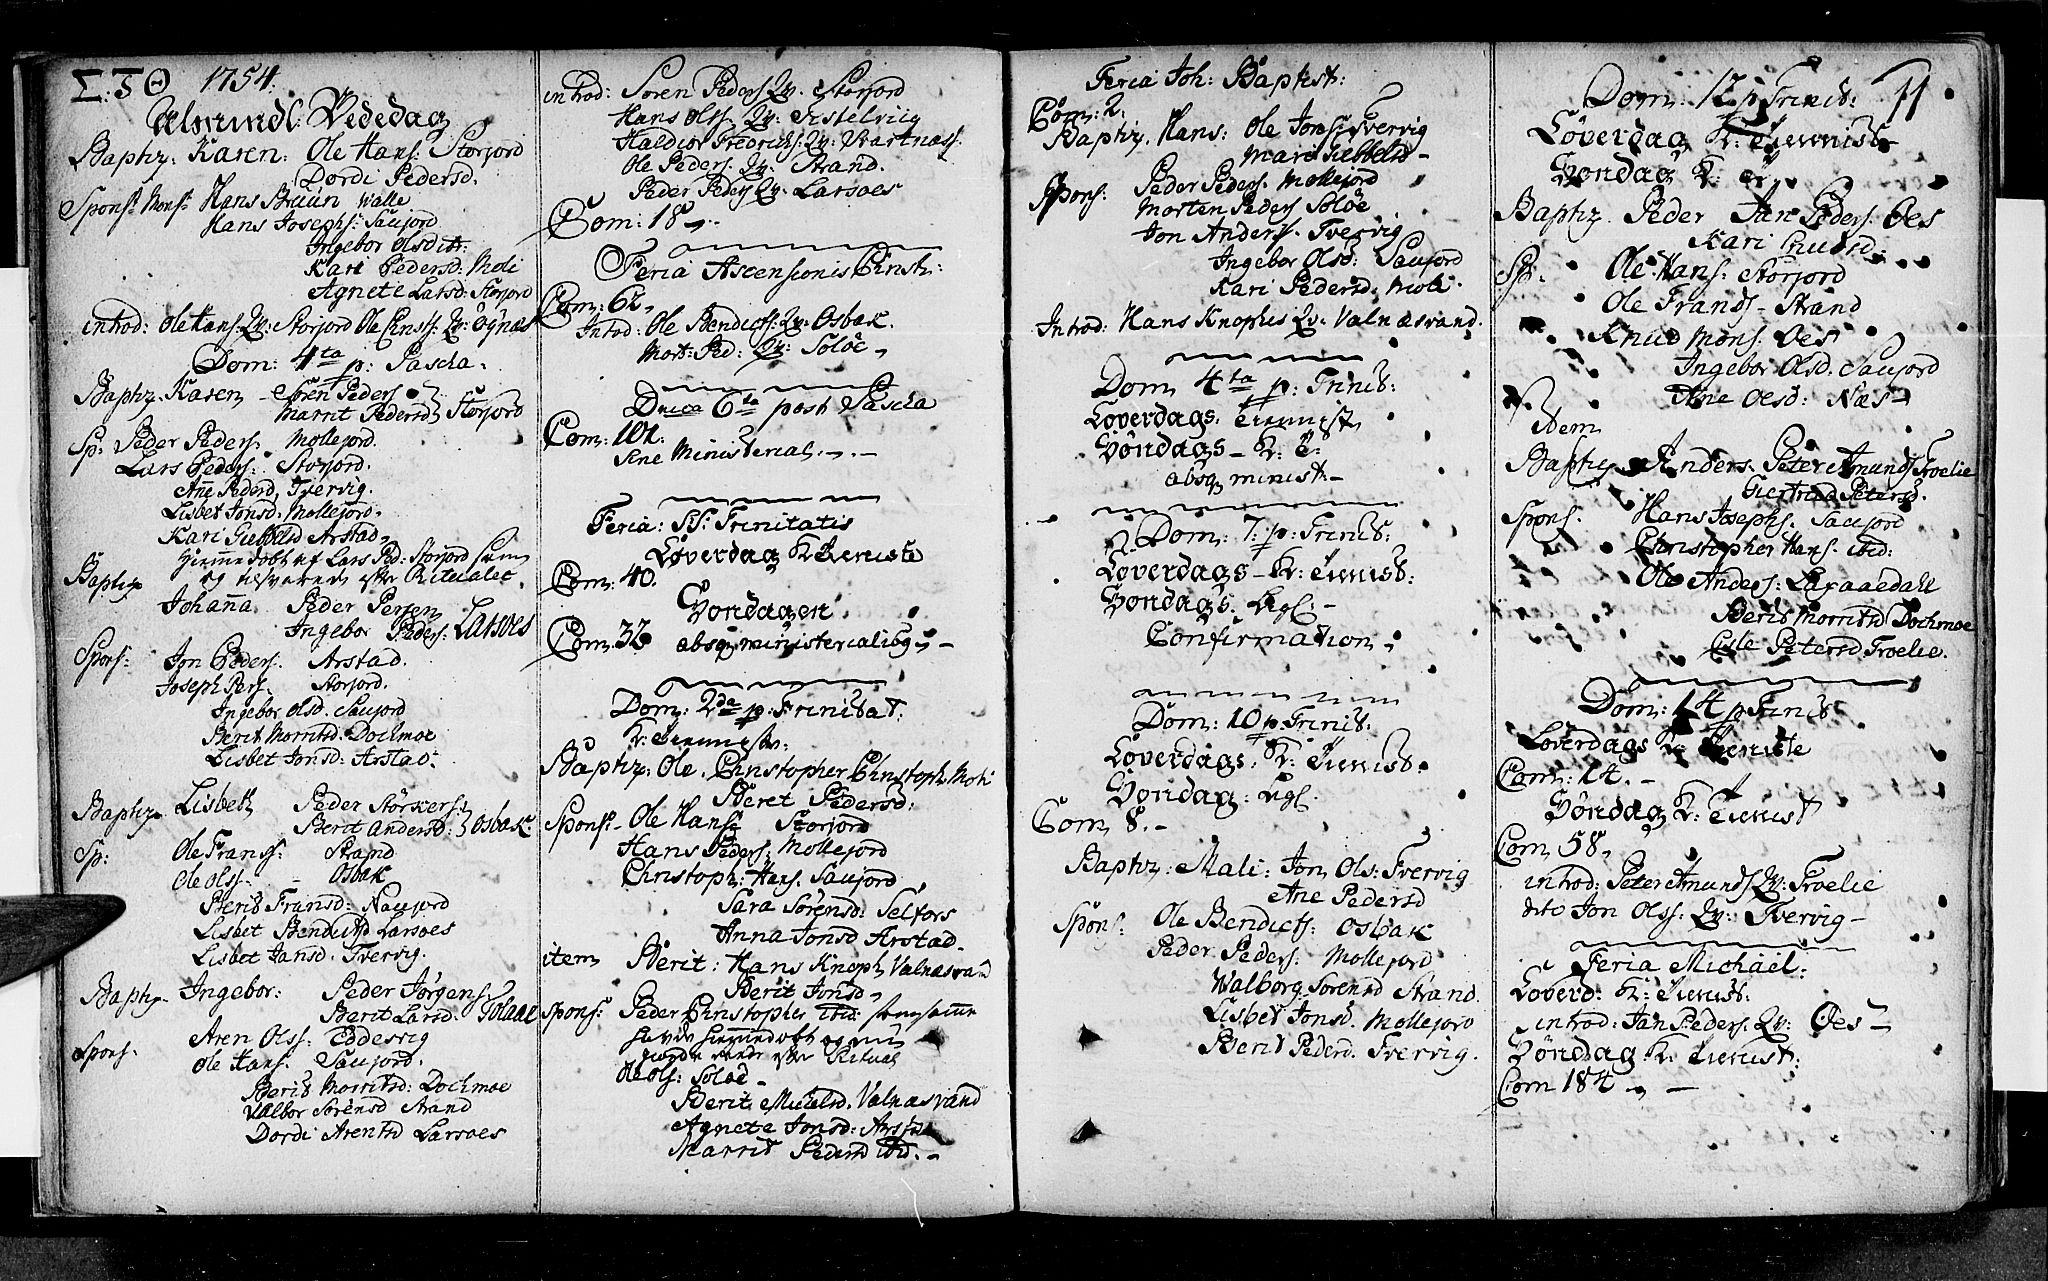 Σ: Τ Θ 1754.
Almindl: Bededag
Baptiz: Karen: Ole Hans: Storford
Dordi Pedersd.
Spons: Mons: Hans Bruun Walle
Hans Josephs: Sauford
Ingebor Olsd ib:
Kari Pedersd: Moli
Agnete Larsd: Storford
introd: Ole Hans: Qv: Storford Ole Qv: Øgnæs
Dom: 4ta p: Pascha.
Baptiz. Karen Søren Peders
Marrit Pedersd Storford
Sp: Peder Peders: Mollejord.
Lars Peders: Storford.
Ane Pedersd, Tvervig.
Lisbet Jonsd: Mollejord.
Kari Arstad,
Hjemmedøbt af Lars Ped: Storford
og efter Ritualet.
Baptiz
Johanna Peder Persen
Ingebor Peders: Larsoes
Spons: Jon Peders. Arstad.
Joseph Pers. Storford.
Ingebor Olsd. Sauford
Berit Morritsd. Dochmoe
Lisbet Jonsd: Arstad.
Baptiz Lisbeth Peder Størkers:
Berit Andersd: Osbak
Sp: Ole Franss: Strand
Ole Olss: - Osbak
Berit Fransd: Nauford
Lisbet Bendictsd Larsoes
Lisbet Jansd. Tvervig.
Baptiz Ingebor: Peder Jörgens
Berit Larsd.
Spons. Aren Olss: Eddevig
Ole Hans. Sauford.
Berit Morritsd: Dochmoe
Valbor Sörensd Strand
Dordi Arentsd Larsoes
introd: Soren Peders Qv. Storford
Hans Olss: Qv:
Haldior Fredrichs: Qv: Svartnæss
Ole Peders: Qv: Strand.
Peder Peders Qv: Larsoes
Com: 18
Feria Ascensionis Christi:
Com: 62,
Introd: Ole Bendicts: Qv: Osbak.
Mort: Ped: Qv: Soløe,
Dnica 6ta post Pascha
Com: 101.
sine Ministerial.
Feria: SS: Trinitatis
Løverdag K: Tieniste
Com: 40.
Søndagen
Com: 32 absq ministerialibg -
Dom: 2da p: Trinitat:
K: Tienniste.
Baptiz: Ole. Christopher Christoph. Moli
Beret Pedersd:
Spons: Ole Hans: Storford
Hans Peders: Mollejord
Christoph: Hans: Sauford
Sara Sörensd: Selfors
Anna Jonsd Arstad.
item Berit: Hans Knoph, Valnæsvand
Berit Jonsd,
spons: Peder Christopher ibid: som samme
havde hiemmedøbt og nu
efter Ritual
Ole Ols: Soløe
Berit Michelsd. Valnæsvand
Agnete Jonsd: Arstad
Marrit Pedersd ibid. -
Feria Joh: Baptist:
Com: 2.
Baptiz. Hans: Ole Jons: Tvervig
Mari -
Spons. Peder Peders. Mollejord
Morten Peders Soløe
Jon Anders. Tvervig
Ingebor Olsd: Sauford
Kari Pedersd: Moli.
Introd: Hans Knophus Qv: Valnæsvand.
Dom 4ta p: Trinit:
Løverdags. Tiennist,
Søndags - K: T:
absq minist -
Dom: 7: p: Trinit:
Løverdags - K: Tiennist:
Søndags. Ligl: -
Confirmation,
Dom: 10 p Trinit:
Løverdags. K: Tiennist.
Søndag: Ligl.
Com 8. -
Baptiz: Mali: Jon Ols: Tvervig
Ane Pedersd
Spons. Ole Bendicts: Osbak
Peder Peders: Mollejord
Walborg Sorensd Strand.
Lisbet Jonsd. Mollejord
Berit Pedersd. Tvervig.
11
Dom: 12 p Trinit:
Løverdag K: Tiennist
Søndag K:
Baptiz. Peder Jan Peders: Oes
Kari Knudsd:
Sp: Ole Hans: Storford
Ole Frands - Strand
Knud Mons: Oes
Ingebor Olsd. Sauford
Ane Oesd: Næs
Item
Baptiz Anders. Peter Amunds Troelie
Giertrud Petersd.
Spons. Hans Josephs. Sauford
Christopher Hans. ibid:
Ole Anders:
Berit Morritsd Dochmoe
Petersd Troelie.
Dom: 14 p Trinit
Løverdags K: Tieniste
Com: 14. -
Søndag K: Tiennist
Com 58,
introd: Peter Amunds Qv: Troelie
dito Jon Olss. Qv: Tvervig -
Feria Michael:
Løverd: K: Tiennist:
introd: Jan Peders. Qv: Oes -
Søndag K: Tiennist:
Com 184 -